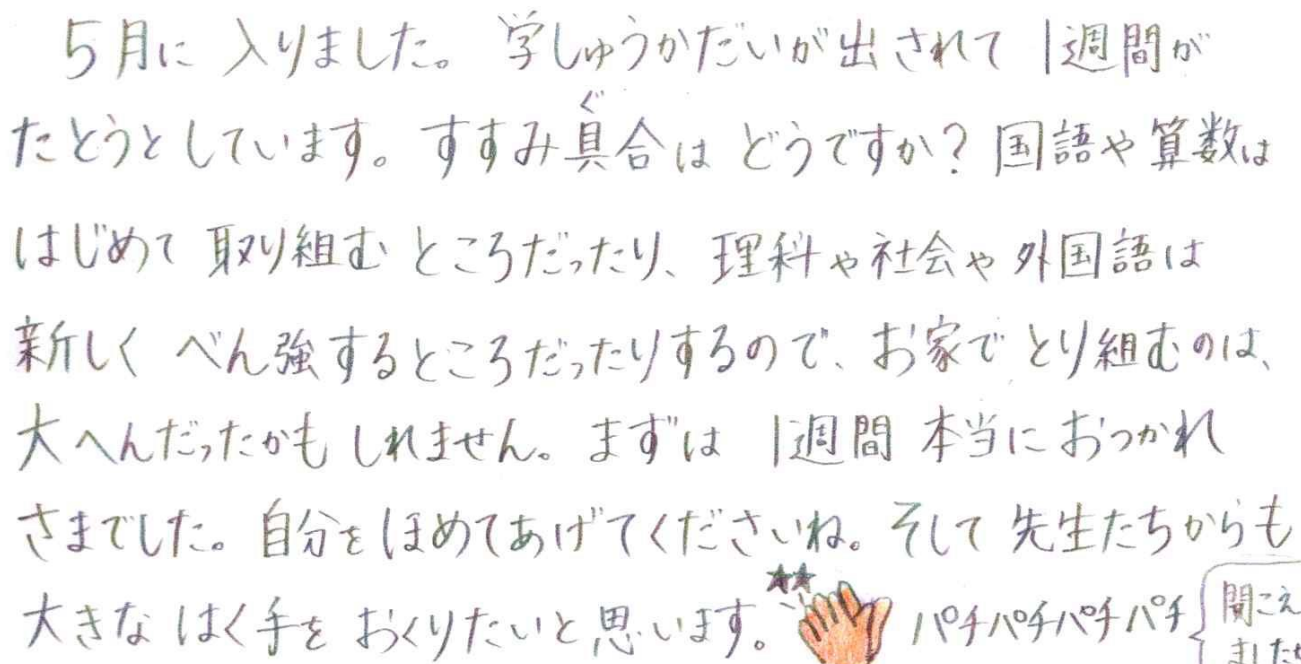 5月に入りました。学しゅうかだいが出されて1週間が
たとうとしています。すすみ具合はどうですか?国語や算数は
ぐ
はじめて取り組むところだったり、理科や社会や外国語は
新しくべん強するところだったりするので、お家でとり組むのは、
大へんだったかもしれません。まずは1週間本当におつかれ
さまでした。自分をほめてあげてくださいね。そして先生たちからも
大きなはく手をおくりたいと思います。パチパチパチパチ
聞こえ
ました